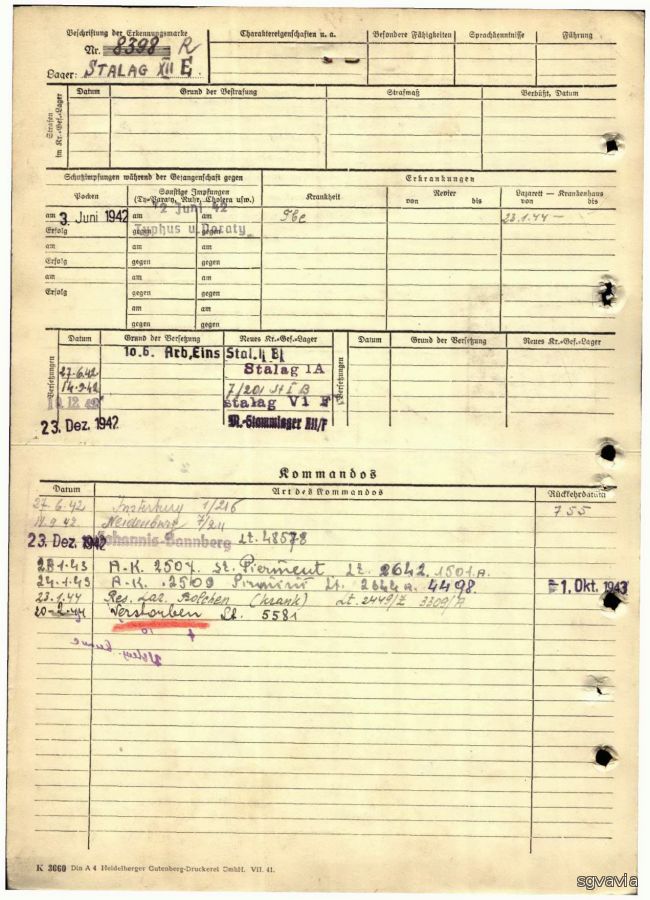 Beschriftung der Erkennungsmarke
Nr. 8398 R
Lager: STALAG XII E
Charaktereigenschaften u. a.
Besondere Fähigkeiten
Sprachkenntnisse
Führung
Strafen im Kr.-Gef.-Lager
Datum
Grund der Bestrafung
Strafmaß
Verbüßt, Datum
Schutzimpfungen während der Gefangenschaft gegen
Erkrankungen
Pocken
Sonstige Impfungen
(Ty-Paraty, Ruhr, Cholera usw.)
Krankheit
Revier
von bis
Lazarett — Krankenhaus
von bis
am 3. Juni 1942
am 12 Juni 42 am
Tbc
23.1.44 –
Erfolg
gegen Typhus u. Paraty gegen
am am am
Erfolg gegen gegen
am am am
Erfolg gegen gegen
am am
gegen gegen
Versetzungen
Datum
Grund der Versetzung
Neues Kr.-Gef.-Lager
Versetzungen
Datum
Grund der Versetzung
Neues Kr.-Gef.-Lager
10.6. Arb,Eins Stal. II B
27.6.42 Stalag IA
14.9.42 7/201 St I B
10 12 42 stalag VI F
23. Dez. 1942 M.-Stammlager XII/F
Kommandos
Datum
Art des Kommandos
Rückkehrdatum
27.6.42 Insterburg 1/216 755
14.9.42 Neidenburg 7/211
23. Dez. 1942 Johannis-Bannberg Lt. 48578
28.1.43 A.K. 2507. St. Pierment Lt. 2642. 1501.A.
24.1.43 A.K. 2509 Lt. 2644 a. 4498. 1. Okt. 1943
23.1.44 Res. Laz. Bolchen (krank) Lt. 2449/Z 3309/A
20-2.44 Verstorben Lt. 5581
K 3660 Din A 4 Heidelberger Gutenberg-Druckerei GmbH. VII. 41.
sgvavia